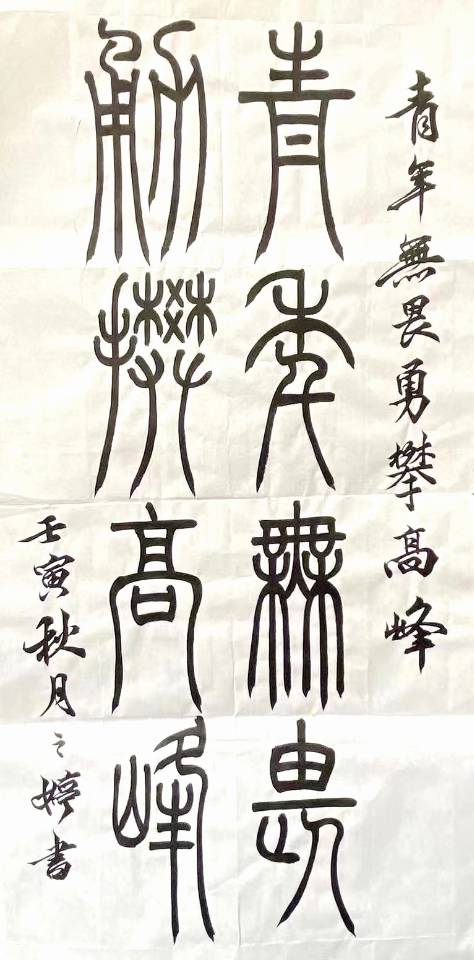 青年無畏勇攀高峰
青年無畏
勇攀高峰
壬寅秋月之婷書